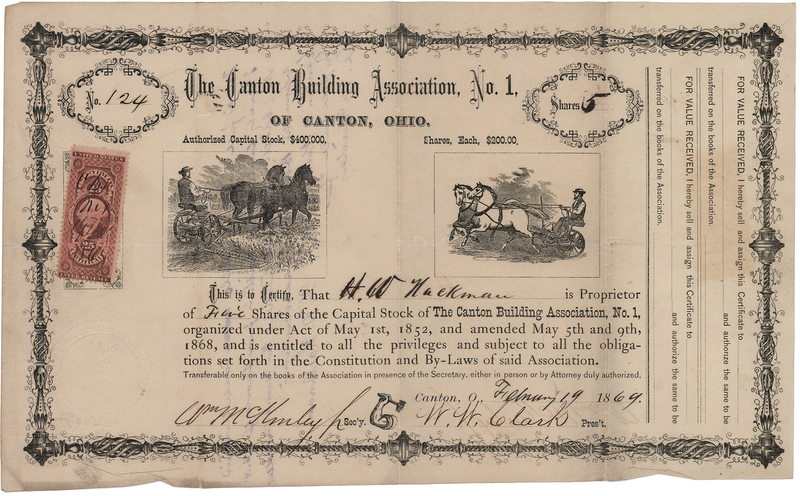 The Canton Building Association, No. 1,
OF CANTON, OHIO.
No. 124
Shares 5
Authorized Capital Stock, $400,000.
Shares, Each, $200.00.
25
This is to Certify, That H. W Hackman is Proprietor
of Five Shares of the Capital Stock of The Canton Building Association, No. 1,
organized under Act of May 1st, 1852, and amended May 5th and 9th,
1868, and is entitled to all the privileges and subject to all the obliga-
tions set forth in the Constitution and By-Laws of said Association.
Transferable only on the books of the Association in presence of the Secretary, either in person or by Attorney duly authorized.
Canton, O., February 19 1869.
Wm McKinley Jr Sec'y.
W. W. Clark Pres't.
FOR VALUE RECEIVED, I hereby sell and assign this Certificate to
and authorize the same to be
transferred on the books of the Association.
FOR VALUE RECEIVED, I hereby sell and assign this Certificate to
and authorize the same to be
transferred on the books of the Association.